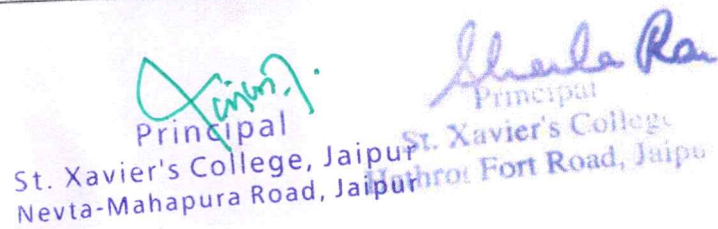 Principal
St. Xavier's College, Jaipur
Nevta-Mahapura Road, Jaipur
Sheela Rai
Principal
St. Xavier's College
Fort Road, Jaipu